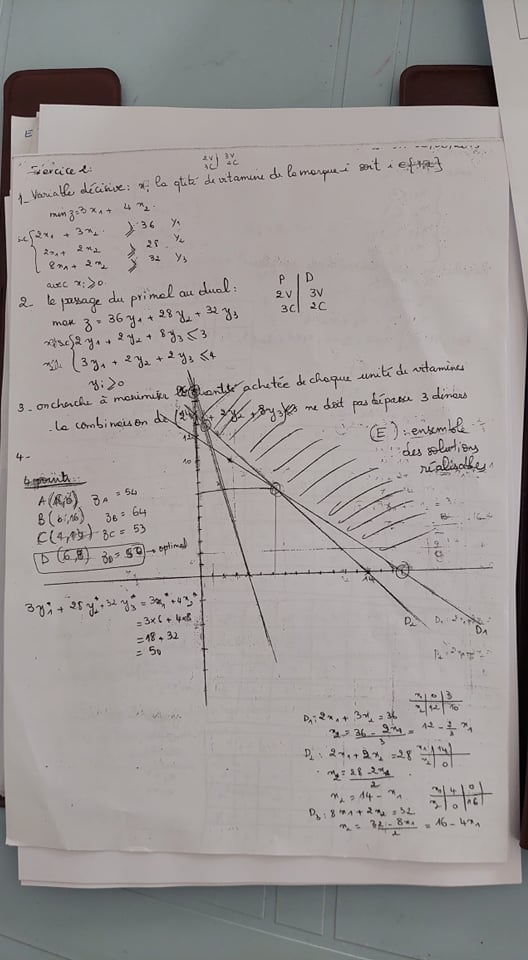 Exercice 2:
2V | 3V
3C | 2C
1_ Variable décisive: xi la qtité de vitamine de la marque i soit i
min z = 3x1 + 4x2
sc { 2x1 + 3x2 ≥ 36 y1
2x1 + 2x2 ≥ 28 y2
8x1 + 2x2 ≥ 32 y3
avec xi ≥ 0
2_ le passage du primal au dual:
P | D
2V | 3V
3C | 2C
max z = 36y1 + 28y2 + 32y3
sc { 2y1 + 2y2 + 8y3 ≤ 3
3y1 + 2y2 + 2y3 ≤ 4
yi ≥ 0
3 - on cherche à maximiser la quantité achetée de chaque unité de vitamines
- la combinaison de (2y1 + 2y2 + 8y3) ne doit pas dépasser 3 dinars
4 -
(E): ensemble
des solutions
réalisables
4 points
A zA = 54
B (0,16) zB = 64
C zC = 53
D (6,8) zD = 50 → optimal
12
10
14
D2
D1
3y1* + 28y2* + 32y3* = 3x1* + 4x2*
= 3×6 + 4×8
= 18 + 32
= 50
x1 | 0 | 3
x2 | 12 | 10
D1: 2x1 + 3x2 = 36
x2 = (36 - 2x1)/3 = 12 - 2/3 x1
D2: 2x1 + 2x2 = 28
x1 | 14
x2 | 0
x2 = (28 - 2x2)/2
x2 = 14 - x1
x1 | 4 | 0
x2 | 0 | 16
D3: 8x1 + 2x2 = 32
x2 = (32 - 8x1)/2 = 16 - 4x1